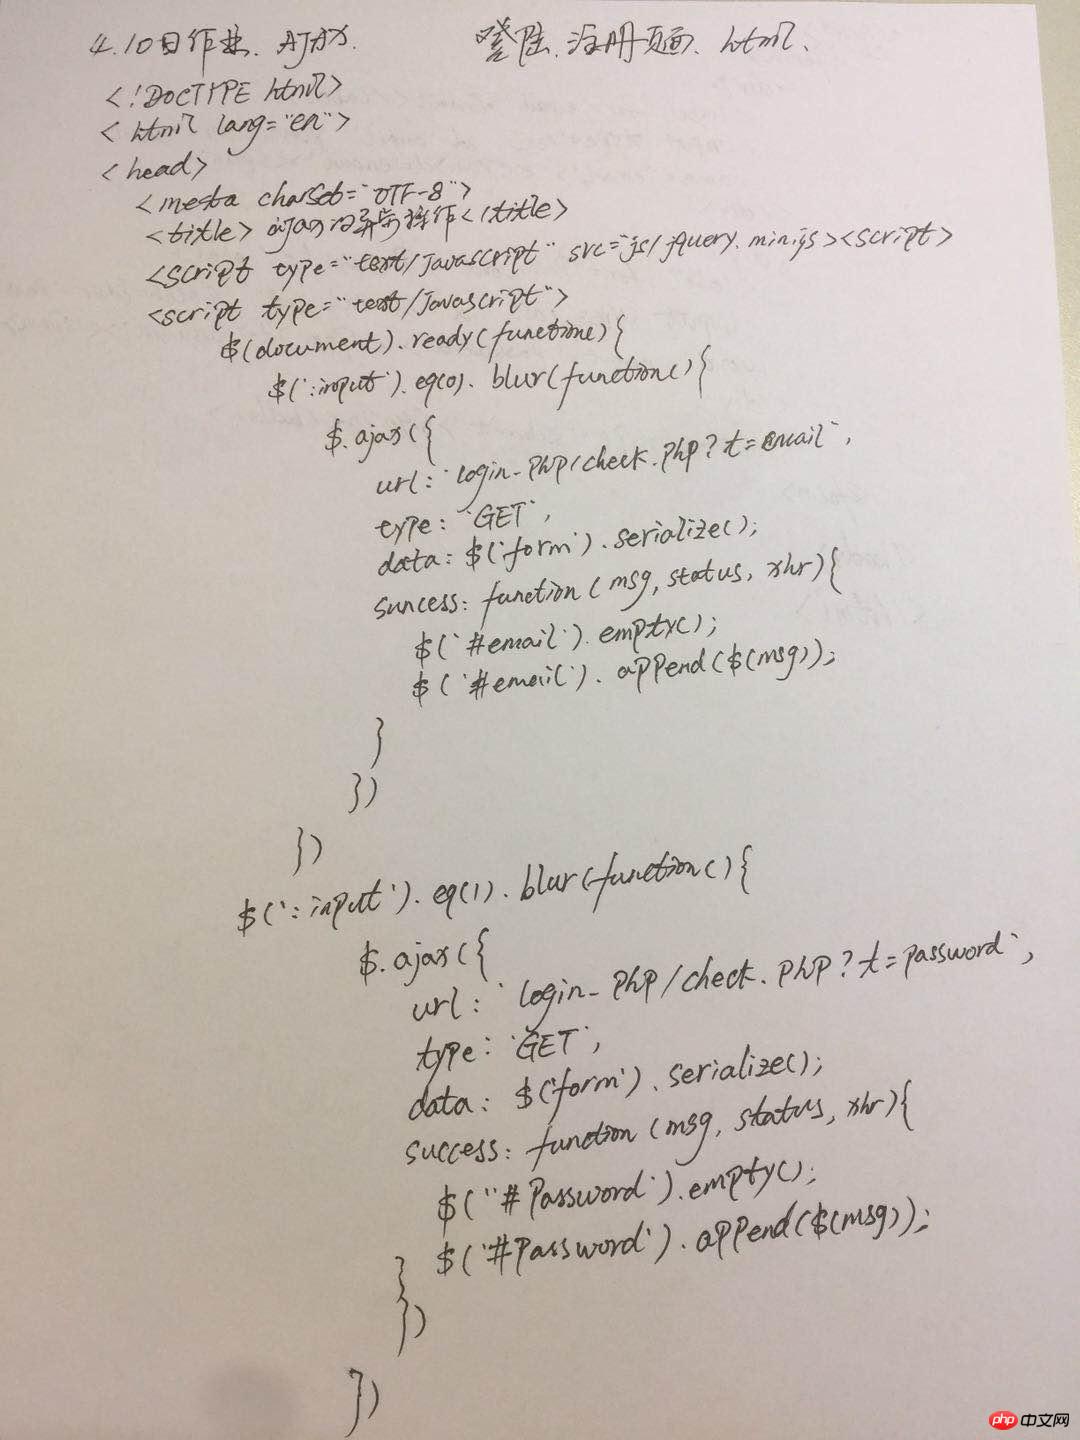 4.10日作业. AJAX. 登陆.注册页面. html.
<!DOCTYPE html>
<html lang="en">
<head>
<meta charset="UTF-8">
<title>ajax的异步操作</title>
<script type="text/javascript" src="js/jQuery.min.js><script>
<script type="text/javascript">
$(document).ready(function(){
$(':input').eq(0).blur(function(){
$.ajax({
url:'login-php/check.php?t=email',
type:'GET',
data:$('form').serialize();
suncess: function(msg,status,xhr){
$('#email').empty();
$('#email').append($(msg));
}
})
})
$(':input').eq(1).blur(function(){
$.ajax({
url:'login-php/check.php?t=password',
type:'GET',
data: $('form').serialize();
success: function(msg,status,xhr){
$("#Password').empty();
$('#Password').append($(msg));
}
})
})
php 中文网